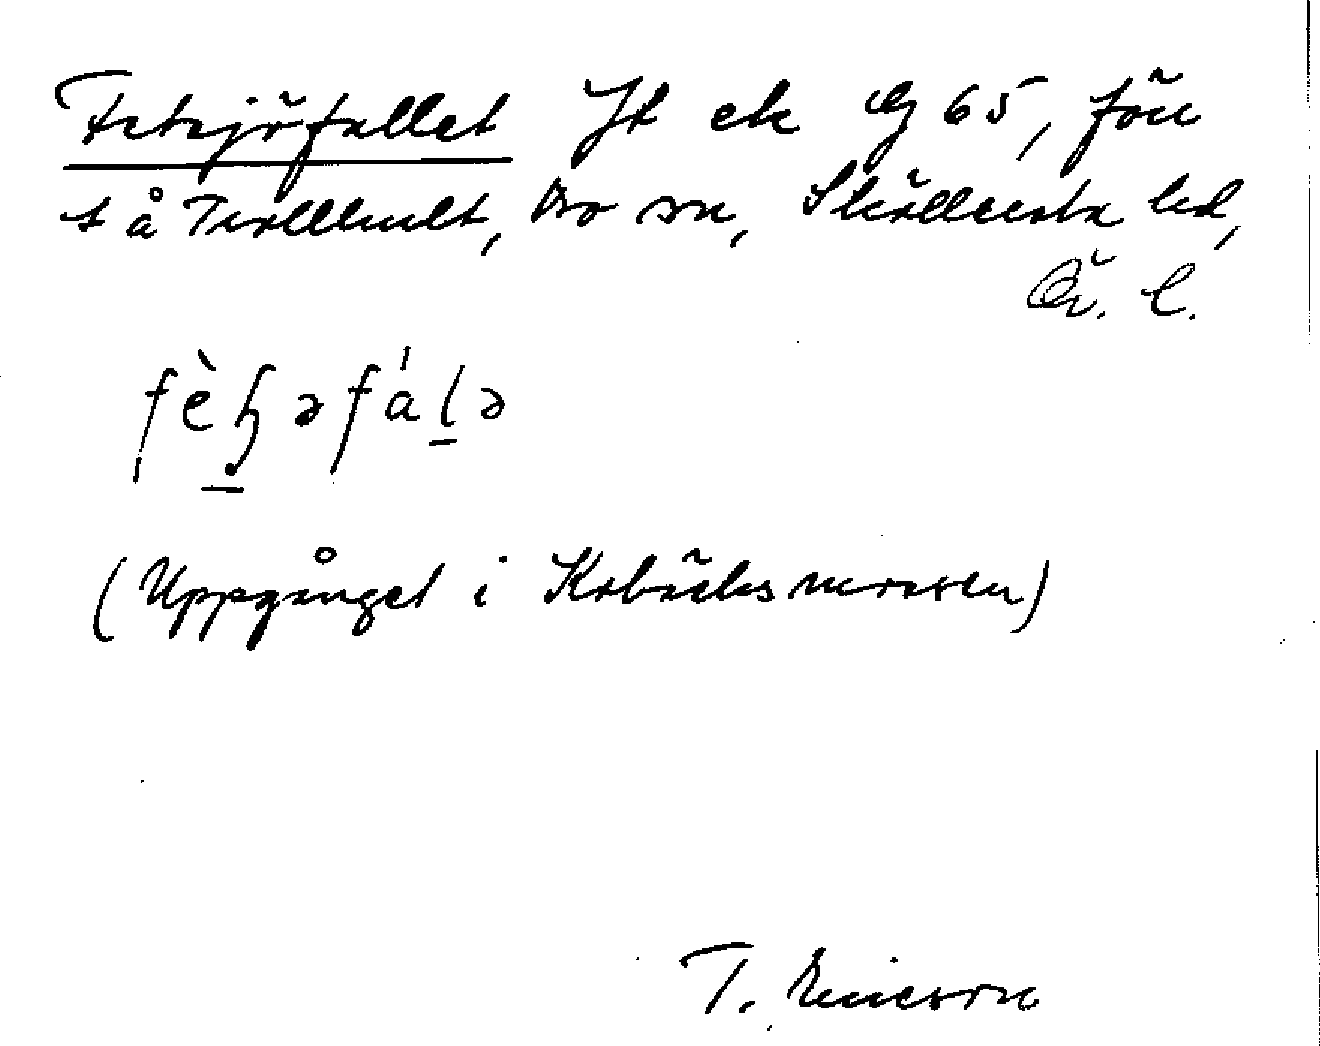 Fetsjöfallet Jt ek G 65, förr
t å Trollhult, Bo sn, Sköllersta hd,
Ör. l.
fèꞕəfálə
(Uppgånget i Kobäcksmossen)
T. Ericsson